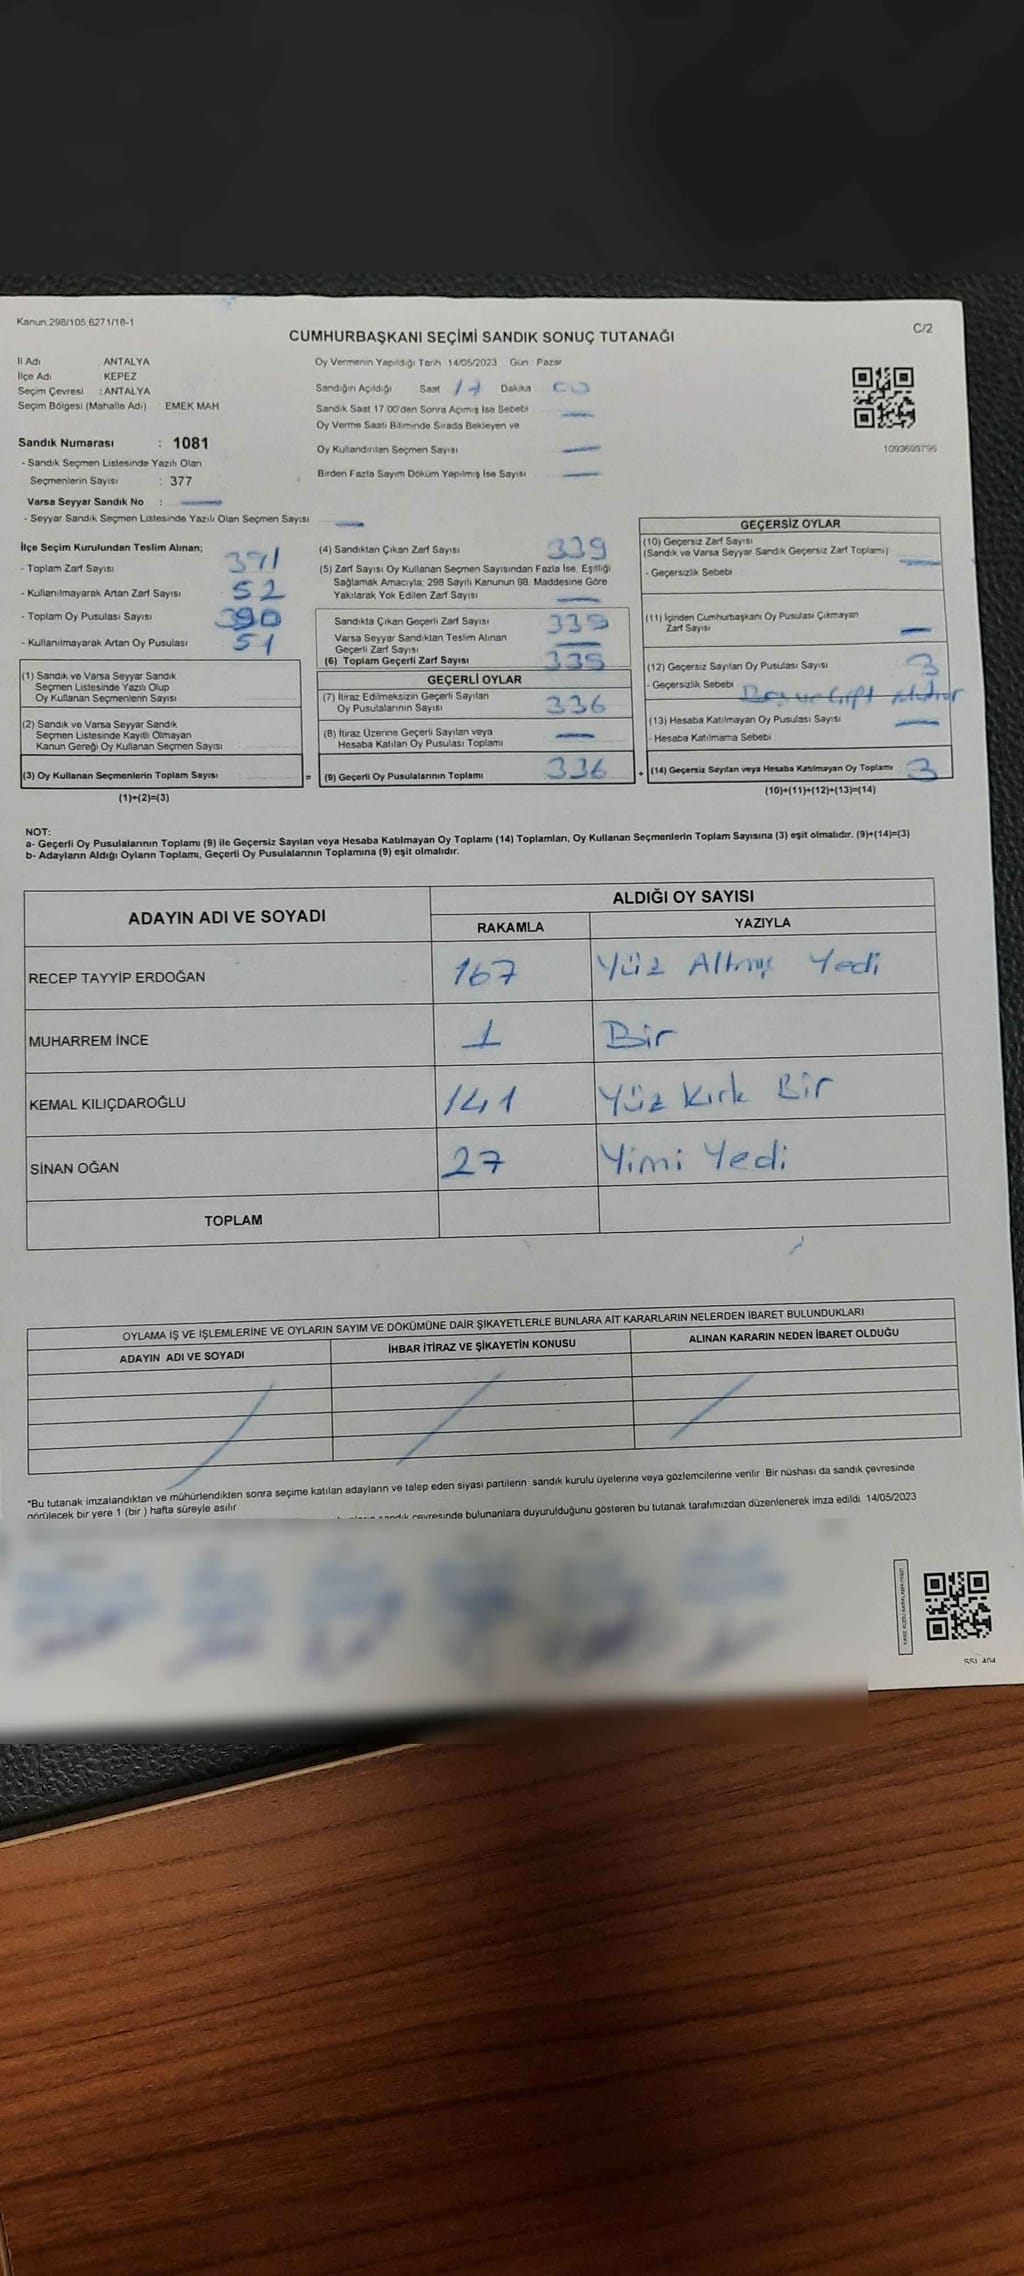 Kanun 298/105,6271/18-1
C/2
CUMHURBAŞKANI SEÇİMİ SANDIK SONUÇ TUTANAĞI
İl Adı : ANTALYA
İlçe Adı : KEPEZ
Seçim Çevresi : ANTALYA
Seçim Bölgesi (Mahalle Adı) EMEK MAH
Sandık Numarası : 1081
- Sandık Seçmen Listesinde Yazılı Olan
Seçmenlerin Sayısı : 377
Varsa Seyyar Sandık No :
- Seyyar Sandık Seçmen Listesinde Yazılı Olan Seçmen Sayısı
Oy Vermenin Yapıldığı Tarih 14/05/2023 Gün Pazar
Sandığın Açıldığı Saat 17 Dakika 00
Sandık Saat 17:00'den Sonra Açımış İse Sebebi
Oy Verme Saati Bitiminde Sırada Bekleyen ve
Oy Kullandırılan Seçmen Sayısı
Birden Fazla Sayım Döküm Yapılmış İse Sayısı
1093699796
İlçe Seçim Kurulundan Teslim Alınan;
- Toplam Zarf Sayısı 391
- Kullanılmayarak Artan Zarf Sayısı 52
- Toplam Oy Pusulası Sayısı 390
- Kullanılmayarak Artan Oy Pusulası 51
(1) Sandık ve Varsa Seyyar Sandık
Seçmen Listesinde Yazılı Olup
Oy Kullanan Seçmenlerin Sayısı
(2) Sandık ve Varsa Seyyar Sandık
Seçmen Listesinde Kayıtlı Olmayan
Kanun Gereği Oy Kullanan Seçmen Sayısı
(3) Oy Kullanan Seçmenlerin Toplam Sayısı
(1)+(2)=(3)
=
(4) Sandıktan Çıkan Zarf Sayısı 339
(5) Zarf Sayısı Oy Kullanan Seçmen Sayısından Fazla İse, Eşitliği
Sağlamak Amacıyla; 298 Sayılı Kanunun 98. Maddesine Göre
Yakılarak Yok Edilen Zarf Sayısı
Sandıkta Çıkan Geçerli Zarf Sayısı 339
Varsa Seyyar Sandıktan Teslim Alınan
Geçerli Zarf Sayısı
(6) Toplam Geçerli Zarf Sayısı 339
GEÇERLİ OYLAR
(7) İtiraz Edilmeksizin Geçerli Sayılan
Oy Pusulalarının Sayısı 336
(8) İtiraz Üzerine Geçerli Sayılan veya
Hesaba Katılan Oy Pusulası Toplamı
(9) Geçerli Oy Pusulalarının Toplamı 336
+
GEÇERSİZ OYLAR
(10) Geçersiz Zarf Sayısı
(Sandık ve Varsa Seyyar Sandık Geçersiz Zarf Toplamı)
- Geçersizlik Sebebi
(11) İçinden Cumhurbaşkanı Oy Pusulası Çıkmayan
Zarf Sayısı
(12) Geçersiz Sayılan Oy Pusulası Sayısı 3
- Geçersizlik Sebebi Boş ve Çift
(13) Hesaba Katılmayan Oy Pusulası Sayısı
- Hesaba Katılmama Sebebi
(14) Geçersiz Sayılan veya Hesaba Katılmayan Oy Toplamı 3
(10)+(11)+(12)+(13)=(14)
NOT:
a- Geçerli Oy Pusulalarının Toplamı (9) ile Geçersiz Sayılan veya Hesaba Katılmayan Oy Toplamı (14) Toplamları, Oy Kullanan Seçmenlerin Toplam Sayısına (3) eşit olmalıdır. (9)+(14)=(3)
b- Adayların Aldığı Oyların Toplamı, Geçerli Oy Pusulalarının Toplamına (9) eşit olmalıdır.
ADAYIN ADI VE SOYADI
ALDIĞI OY SAYISI
RAKAMLA YAZIYLA
RECEP TAYYİP ERDOĞAN 167 Yüz Altmış Yedi
MUHARREM İNCE 1 Bir
KEMAL KILIÇDAROĞLU 141 Yüz Kırk Bir
SİNAN OĞAN 27 Yimi Yedi
TOPLAM
OYLAMA İŞ VE İŞLEMLERİNE VE OYLARIN SAYIM VE DÖKÜMÜNE DAİR ŞİKAYETLERLE BUNLARA AİT KARARLARIN NELERDEN İBARET BULUNDUKLARI
ADAYIN ADI VE SOYADI İHBAR İTİRAZ VE ŞİKAYETİN KONUSU ALINAN KARARIN NEDEN İBARET OLDUĞU
*Bu tutanak imzalandıktan ve mühürlendikten sonra seçime katılan adayların ve talep eden siyasi partilerin sandık kurulu üyelerine veya gözlemcilerine verilir. Bir nüshası da sandık çevresinde
görülecek bir yere 1 (bir) hafta süreyle asılır
sandık çevresinde bulunanlara duyurulduğunu gösteren bu tutanak tarafımızdan düzenlenerek imza edildi. 14/05/2023